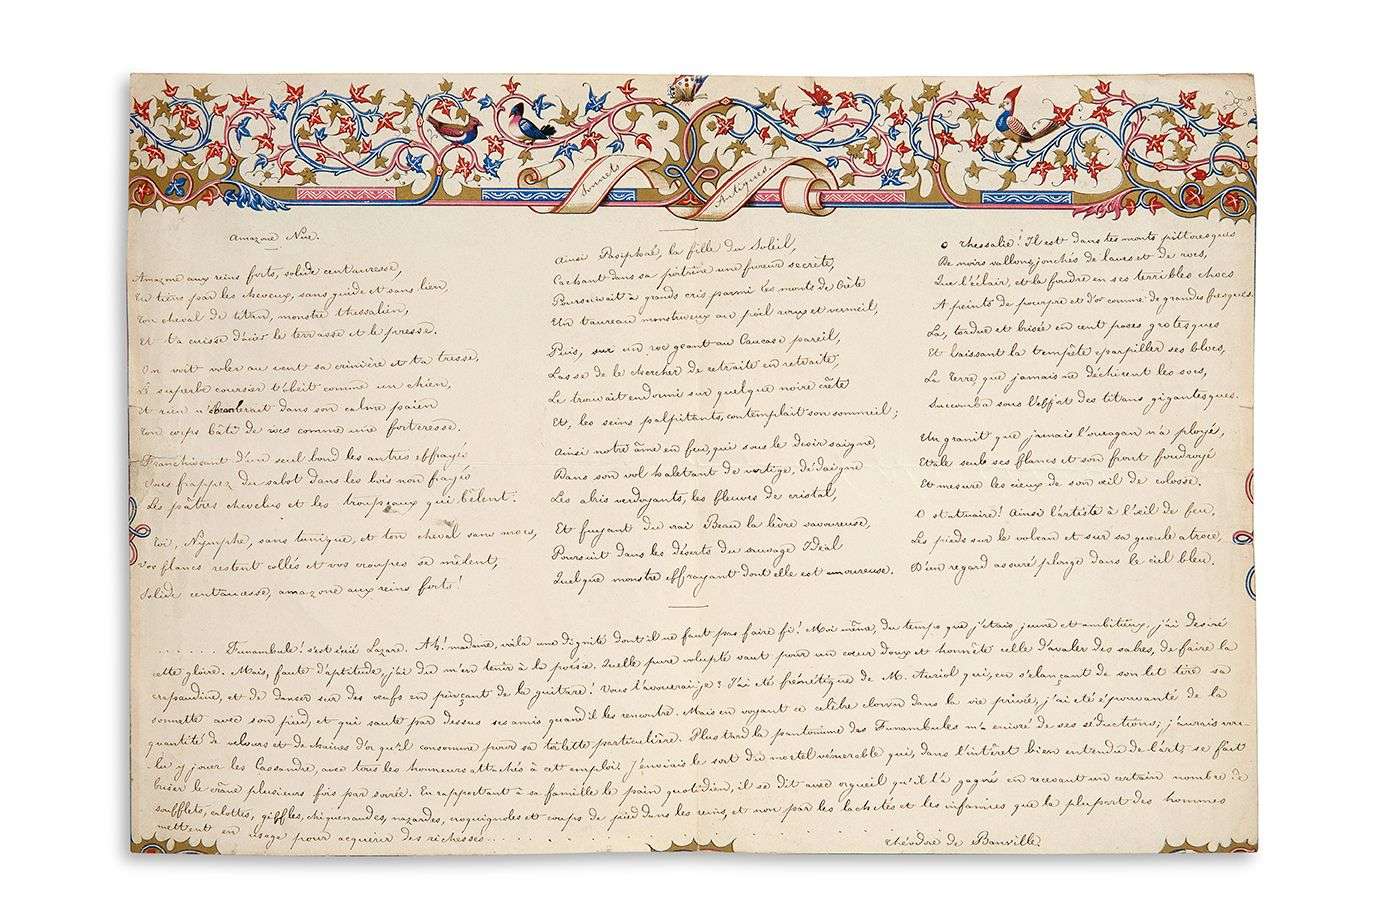 Sonnets Antiques.
Amazone Nue.
Amazone aux reins forts, solide centauresse,
Tu tiens par les cheveux, sans guide et sans lien
Ton cheval de titan, monstre thessalien,
Et ta cuisse d'acier le terrasse et le presse.
On voit voler au vent sa crinière et ta tresse.
Le superbe coursier t'obéit comme un chien,
Et rien n'ébranlerait dans son calme païen
Ton corps bâti de rocs comme une forteresse.
Franchissant d'un seul bond les antres effrayés
Vous frappez du sabot dans les bois non frayés
Les pâtres chevelus et les troupeaux qui bêlent.
Toi, Nymphe, sans tunique, et ton cheval sans mors,
Vos flancs restent collés et vos croupes se mêlent,
Solide centauresse, amazone aux reins forts!
Ainsi Pasiphaé, la fille du Soleil,
Cachant dans sa poitrine une fureur secrète,
Poursuivait à grands cris parmi les monts de Crète
Un taureau monstrueux au poil roux et vermeil,
Puis, sur un roc géant au Caucase pareil,
Lasse de le chercher de retraite en retraite,
Le trouvait endormi sur quelque noire crête
Et, les seins palpitants, contemplait son sommeil;
Ainsi notre âme en feu, qui sous le désir saigne,
Dans son vol haletant de vertige, dédaigne
Les abris verdoyants, les fleuves de cristal,
Et fuyant du vrai Beau la lèvre savoureuse,
Poursuit dans les déserts du sauvage Idéal
Quelque monstre effrayant dont elle est amoureuse.
O Thessalie! Il est dans tes monts pittoresques
De noirs vallons jonchés de laves et de rocs,
Que l'éclair, et la foudre en ses terribles chocs
A peints de pourpre et d'or comme de grandes fresques.
La, tordue et brisée en cent poses grotesques
Et laissant la tempête éparpiller ses blocs,
La Terre, que jamais ne déchirent les socs,
Succomba sous l'effort des titans gigantesques.
Un granit que jamais l'ouragan n'a ployé,
Etale seul ses flancs et son front foudroyé
Et mesure les cieux de son œil de colosse.
O statuaire! Ainsi l'artiste à l'œil de feu,
Les pieds sur le volcan et sur sa gueule atroce,
D'un regard assuré plonge dans le ciel bleu.
. . . . . . Funambule! s'est écrié Lazare. Ah! madame, voila une dignité dont il ne faut pas faire fi! Moi même, du temps que j'étais jeune et ambitieux, j'ai désiré
cette gloire. Mais, faute d'aptitude, j'ai du m'en tenir à la poésie. Quelle pure volupté vaut pour un cœur doux et honnête celle d'avaler des sabres, de faire la
crapaudine, et de danser sur des œufs en pinçant de la guitare! Vous l'avouerai-je? J'ai été frénétique de M. Auriol qui, en s'élançant de son lit tire sa
sonnette avec son pied, et qui saute par dessus ses amis quand il les rencontre. Mais en voyant ce célèbre clown dans la vie privée, j'ai été épouvanté de la
quantité de velours et de chaînes d'or qu'il consomme pour sa toilette particulière. Plus tard la pantomime des Funambules m'a enivré de ses séductions; j'aurais vou-
lu y jouer les Cassandre, avec tous les honneurs attachés à cet emploi. J'enviais le sort du mortel vénérable qui, dans l'intérêt bien entendu de l'art, se fait
briser le crâne plusieurs fois par soirée. En rapportant à sa famille le pain quotidien, il se dit avec orgueil qu'il l'a gagné en recevant un certain nombre de
soufflets, calottes, giffles, chiquenaudes, nazardes, croquignoles et coups de pied dans les reins, et non par les lachetés et les infamies que la plupart des hommes
mettent en usage pour acquérir des richesses. . . . . . . . . . .
Théodore de Banville.